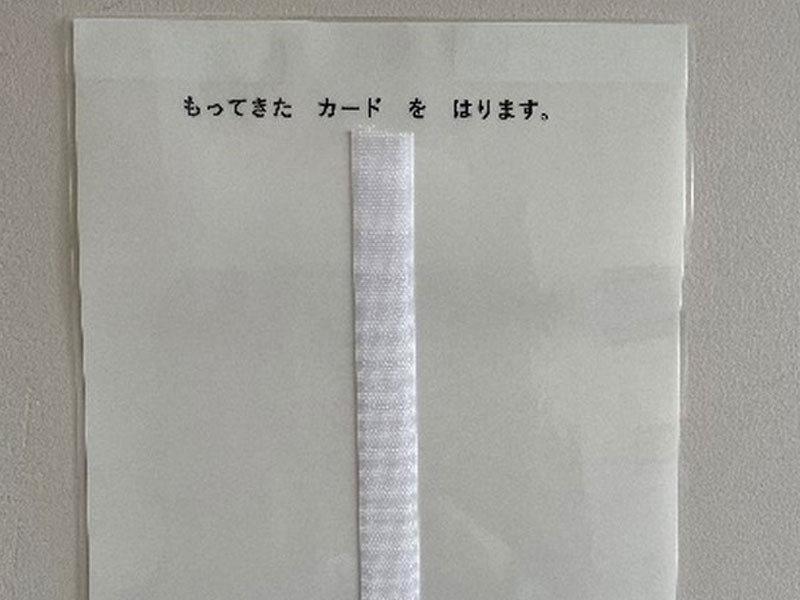 もってきた　カード　を　はります。